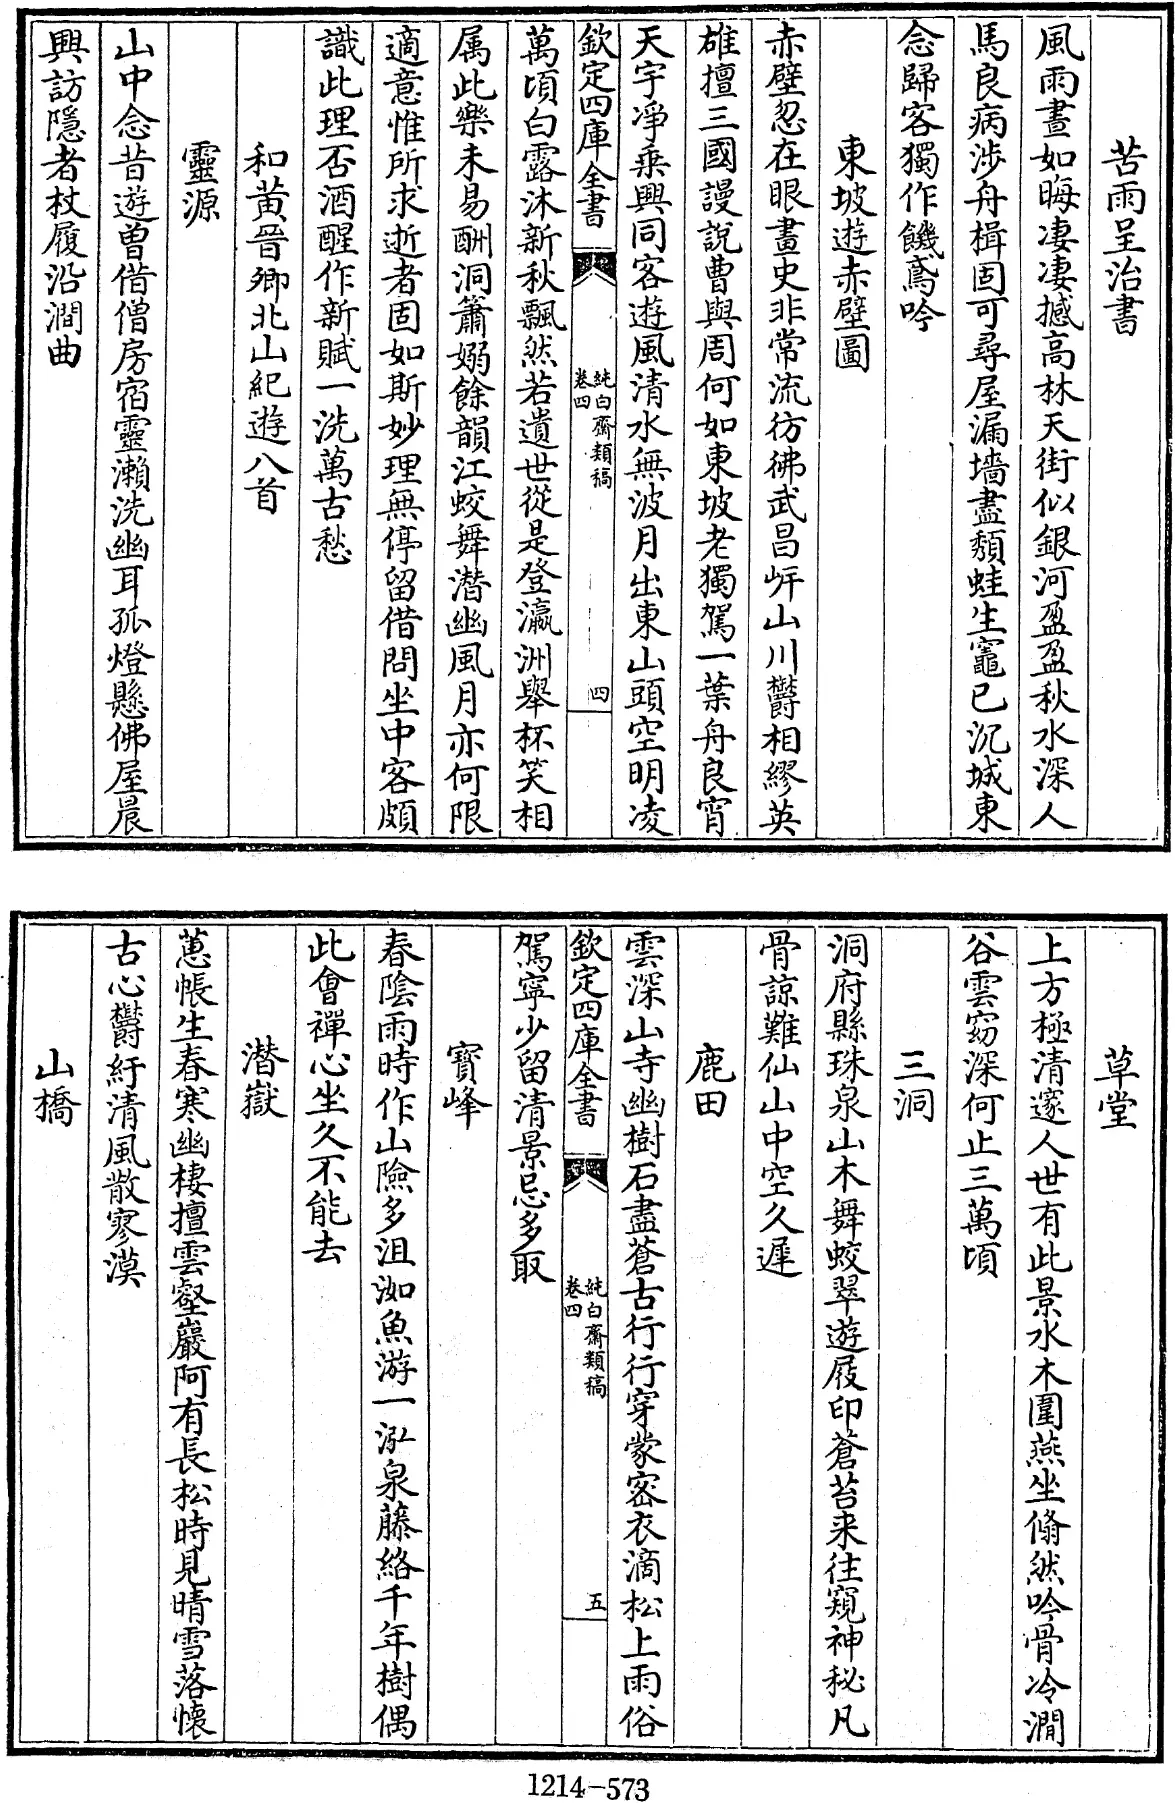 苦雨呈治書
風雨晝如晦凄凄撼高林天街似銀河盈盈秋水深人
馬良病涉舟楫固可尋屋漏墻盡頽蛙生竈已沉城東
念歸客獨作饑鳶吟
東坡遊赤壁圖
赤壁忽在眼畫史非常流彷彿武昌㟁山川欝相繆英
雄擅三國謾說曹與周何如東坡老獨駕一葉舟良宵
天宇凈乗興同客遊風清水無波月出東山頭空明凌
欽定四庫全書
純白齋類稿
卷四
四
萬頃白露沐新秋飄然若遺世從是登瀛洲舉杯笑相
属此樂未易酬洞簫嫋餘韻江蛟舞潛幽風月亦何限
適意惟所求逝者固如斯妙理無停留借問坐中客頗
識此理否酒醒作新賦一洗萬古愁
和黃晉卿北山紀遊八首
靈源
山中念昔遊曽借僧房宿靈瀨洗幽耳孤燈懸佛屋晨
興訪隱者杖履沿澗曲
草堂
上方極清邃人世有此景水木圍燕坐翛然吟骨冷澗
谷雲窈深何止三萬頃
三洞
洞府縣珠泉山木舞蛟翠遊屐印蒼苔来往窺神秘凡
骨諒難仙山中空久遲
鹿田
雲深山寺幽樹石盡蒼古行行穿蒙宻衣滴松上雨俗
欽定四庫全書
純白齋類稿
卷四
五
駕寧少留清景忌多取
寶峰
春陰雨時作山險多沮洳魚游一泓泉藤絡千年樹偶
此會禪心坐久不能去
潛嶽
蕙帳生春寒幽棲擅雲壑巖阿有長松時見晴雪落懷
古心欝紆清風散寥漠
山橋
1214-573